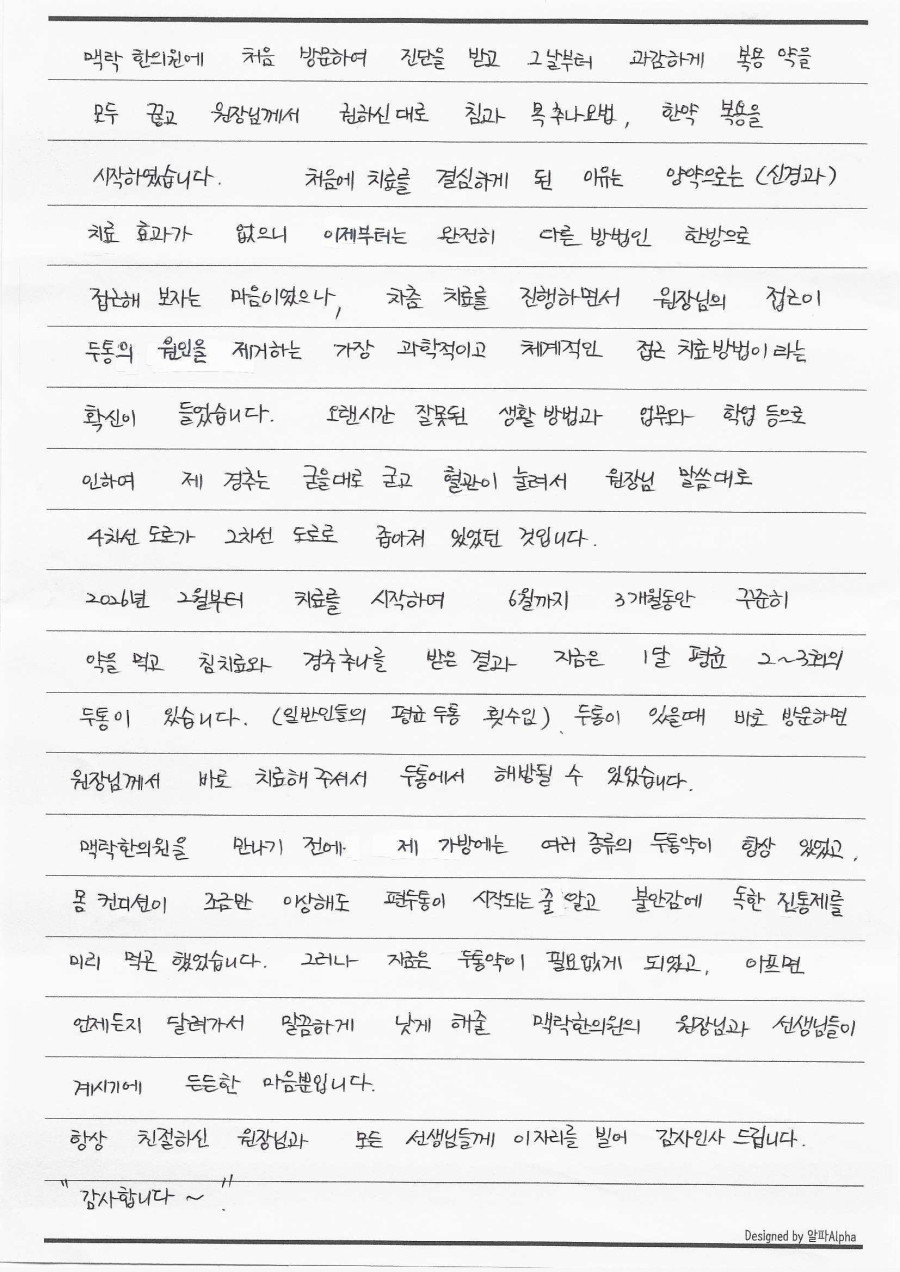 맥락 한의원에 처음 방문하여 진단을 받고 그날부터 과감하게 복용 약을
모두 끊고 원장님께서 권하신 대로 침과 목 추나요법, 한약 복용을
시작하였습니다. 처음에 치료를 결심하게 된 이유는 양약으로는 (신경과)
치료 효과가 없으니 이제부터는 완전히 다른 방법인 한방으로
접근해 보자는 마음이었으나, 차츰 치료를 진행하면서 원장님의 접근이
두통의 원인을 제거하는 가장 과학적이고 체계적인 접근 치료방법이라는
확신이 들었습니다. 오랜시간 잘못된 생활 방법과 업무와 학업 등으로
인하여 제 경추는 굳을대로 굳고 혈관이 눌려서 원장님 말씀대로
4차선 도로가 2차선 도로로 좁아져 있었던 것입니다.
2026년 2월부터 치료를 시작하여 6월까지 3개월동안 꾸준히
약을 먹고 침치료와 경추추나를 받은 결과 지금은 1달 평균 2~3회의
두통이 있습니다. (일반인들의 평균 두통 횟수임). 두통이 있을때 바로 방문하면
원장님께서 바로 치료해 주셔서 두통에서 해방될 수 있었습니다.
맥락한의원을 만나기 전에 제 가방에는 여러 종류의 두통약이 항상 있었고,
몸 컨디션이 조금만 이상해도 편두통이 시작되는 줄 알고 불안감에 독한 진통제를
미리 먹곤 했었습니다. 그러나 지금은 두통약이 필요없게 되었고, 아프면
언제든지 달려가서 말끔하게 낫게 해줄 맥락한의원의 원장님과 선생님들이
계시기에 든든한 마음뿐입니다.
항상 친절하신 원장님과 모든 선생님들께 이자리를 빌어 감사인사 드립니다.
"감사합니다 ~ ".
Designed by 알파Alpha